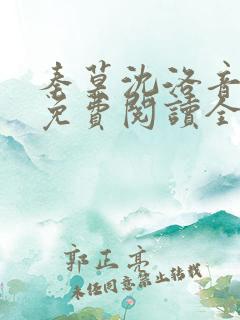 秦墓沈洛音
免費閱讀全
郭正亮
未经同意禁止转载